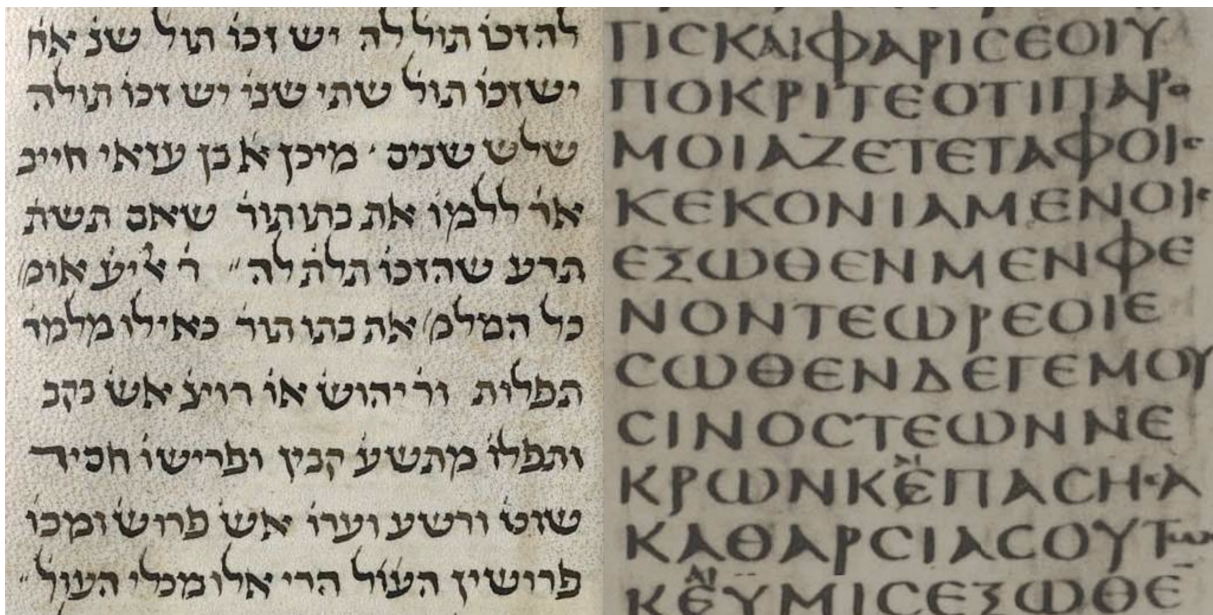 להזכו תול לה יש זכו תול שנ אח
יש זכו תול שתי שני יש זכו תולה
שלש שנים מיכן א בן עזאי חייב
אד ללמד את בתו תור שאם תשת
תדע שהזכו תלת לה ר אליע אומ
כל המלמ את בתו תור כאילו מלמד
תפלות ור יהוש או רוצ אש בקב
ותפלו מתשע קבין ופרישו חסיד
שוט ורשע וערו אש פרוש ומכו
פרושין העול הרי אלו מכלי העול
ΓΙϹΚΑΙΦΑΡΙϹΕΟΙΥ
ΠΟΚΡΙΤΕΟΤΙΠΑΡΟ
ΜΟΙΑΖΕΤΕΤΑΦΟΙϹ
ΚΕΚΟΝΙΑΜΕΝΟΙϹ
ΕΞΩΘΕΝΜΕΝΦΕ
ΝΟΝΤΕΩΡΕΟΙΕ
ϹΩΘΕΝΔΕΓΕΜΟΥ
ϹΙΝΟϹΤΕΩΝΝΕ
ΚΡΩΝΚΕΠΑϹΗϹΑ
ΚΑΘΑΡϹΙΑϹΟΥΤΩ
ΚΕΥΜΙϹΕΞΩΘΕ